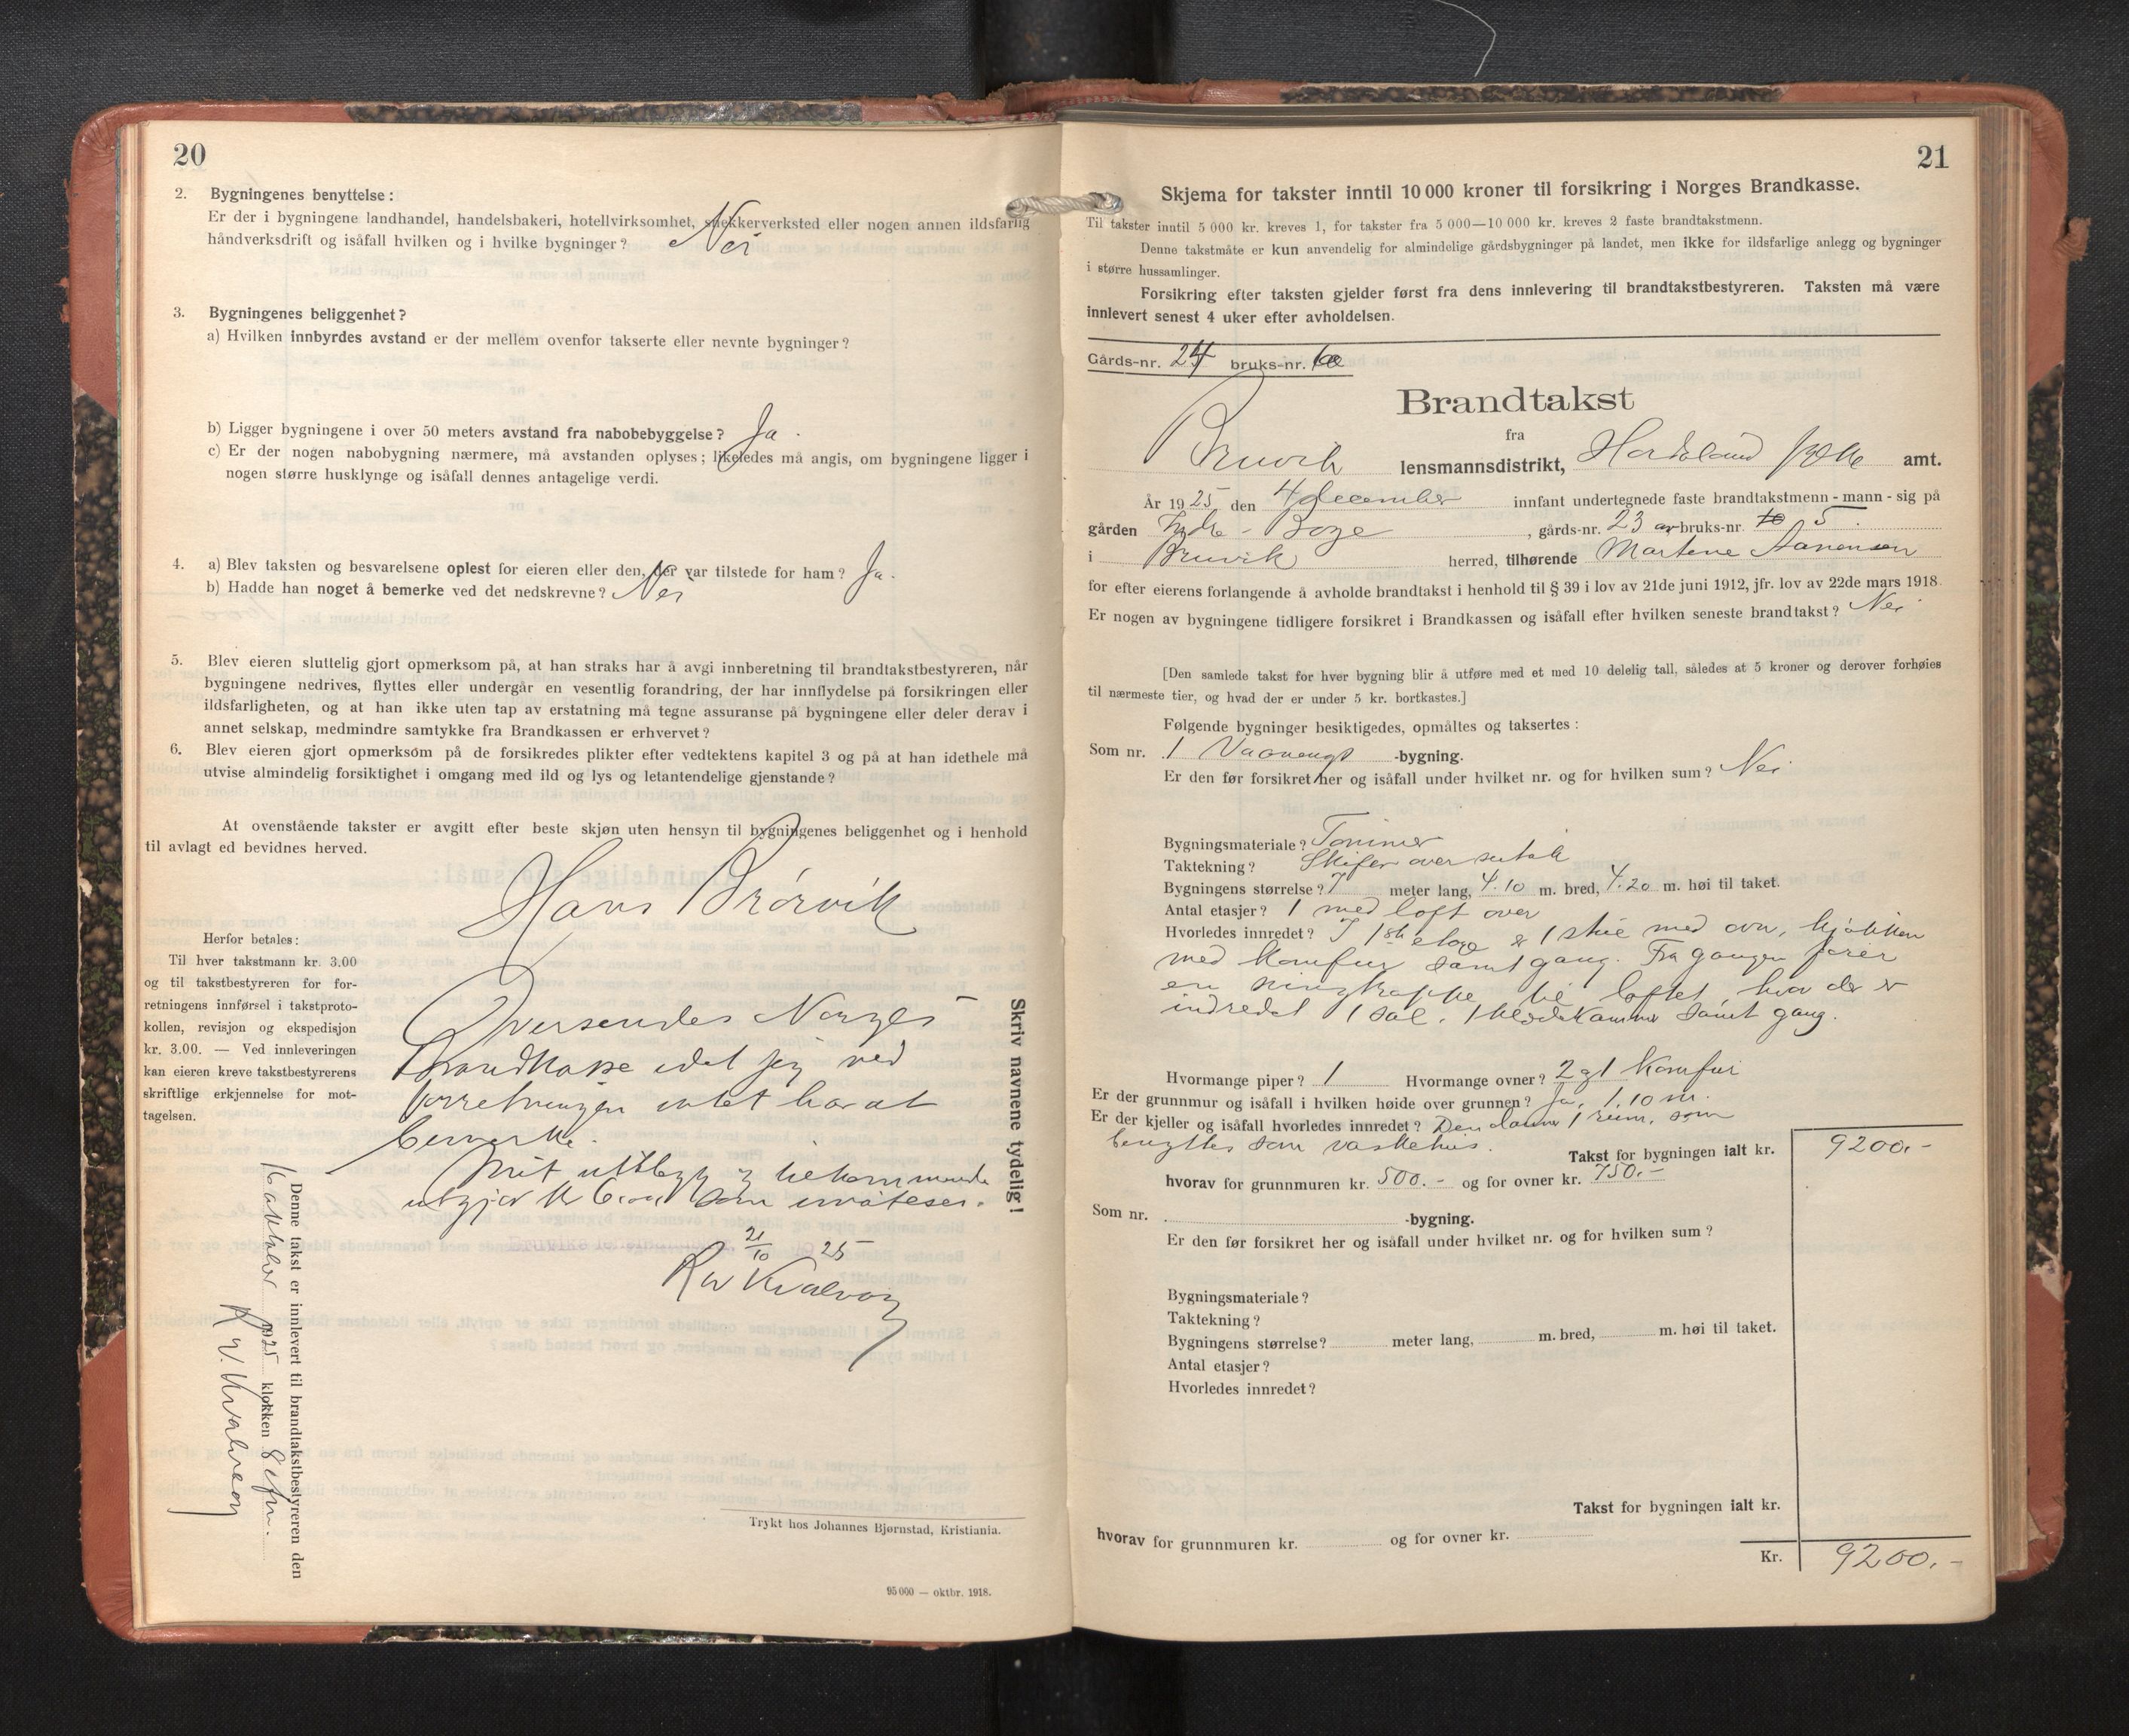 20
2. Bygningenes benyttelse:
Er der i bygningene landhandel, handelsbakeri, hotellvirksomhet, snekkerverksted eller nogen annen ildsfarlig
håndverksdrift og isåfall hvilken og i hvilke bygninger? Nei
3. Bygningenes beliggenhet?
a) Hvilken innbyrdes avstand er der mellem ovenfor takserte eller nevnte bygninger?
b) Ligger bygningene i over 50 meters avstand fra nabobebyggelse? Ja.
c) Er der nogen nabobygning nærmere, må avstanden oplyses; likeledes må angis, om bygningene ligger i
nogen større husklynge og isåfall dennes antagelige verdi.
4. a) Blev taksten og besvarelsene oplest for eieren eller den, der var tilstede for ham? Ja.
b) Hadde han noget å bemerke ved det nedskrevne? Nei
5. Blev eieren sluttelig gjort opmerksom på, at han straks har å avgi innberetning til brandtakstbestyreren, når
bygningene nedrives, flyttes eller undergår en vesentlig forandring, der har innflydelse på forsikringen eller
ildsfarligheten, og at han ikke uten tap av erstatning må tegne assuranse på bygningene eller deler derav i
annet selskap, medmindre samtykke fra Brandkassen er erhvervet?
6. Blev eieren gjort opmerksom på de forsikredes plikter efter vedtektens kapitel 3 og på at han idethele må
utvise almindelig forsiktighet i omgang med ild og lys og letantendelige gjenstande?
At ovenstående takster er avgitt efter beste skjøn uten hensyn til bygningenes beliggenhet og i henhold
til avlagt ed bevidnes herved.
Hans Brørvik
Herfor betales:
Til hver takstmann kr. 3.00
og til takstbestyreren for for-
retningens innførsel i takstproto-
kollen, revisjon og ekspedisjon
kr. 3.00. — Ved innleveringen
kan eieren kreve takstbestyrerens
skriftlige erkjennelse for mot-
tagelsen.
Oversendes Norges
Brandkasse idet jeg ved
forretningen intet har at
bemerke.
Mit utlegg
utgjør kr som
21/10 25
R W Kvalvaag
Skriv navnene tydelig!
Denne takst er innlevert til brandtakstbestyreren den
16 oktober 1925 klokken 8 efm.
R. W. Kvalvaag
Trykt hos Johannes Bjørnstad, Kristiania.
95 000 — oktbr. 1918.
21
Skjema for takster inntil 10 000 kroner til forsikring i Norges Brandkasse.
Til takster inntil 5 000 kr. kreves 1, for takster fra 5 000—10 000 kr. kreves 2 faste brandtakstmenn.
Denne takstmåte er kun anvendelig for almindelige gårdsbygninger på landet, men ikke for ildsfarlige anlegg og bygninger
i større hussamlinger.
Forsikring efter taksten gjelder først fra dens innlevering til brandtakstbestyreren. Taksten må være
innlevert senest 4 uker efter avholdelsen.
Gårds-nr. 24 bruks-nr.
Brandtakst
fra
Bruvik lensmannsdistrikt, Hordaland fylke amt.
År 1925 den 4 december innfant undertegnede faste brandtakstmenn - mann - sig på
gården Indre - Boge, gårds-nr. 23 av bruks-nr. 5.
i Bruvik herred, tilhørende Martene Aanensen
for efter eierens forlangende å avholde brandtakst i henhold til § 39 i lov av 21de juni 1912, jfr. lov av 22de mars 1918.
Er nogen av bygningene tidligere forsikret i Brandkassen og isåfall efter hvilken seneste brandtakst? Nei
[Den samlede takst for hver bygning blir å utføre med et med 10 delelig tall, således at 5 kroner og derover forhøies
til nærmeste tier, og hvad der er under 5 kr. bortkastes.]
Følgende bygninger besiktigedes, opmåltes og taksertes:
Som nr. 1 Vaanengs -bygning.
Er den før forsikret her og isåfall under hvilket nr. og for hvilken sum? Nei
Bygningsmateriale? Tømmer
Taktekning? Skifer over sutak
Bygningens størrelse? 7 meter lang, 4.10 m. bred, 4.20 m. høi til taket.
Antal etasjer? 1 med loft over
Hvorledes innredet? I 1ste etage er 1 stue med ovn, kjøkken
med komfur samt gang. Fra gangen fører
en svingtrappe til loftet, hvor der er
indredet 1 sal, 1 klædekammer samt gang.
Hvormange piper? 1 Hvormange ovner? 2 og 1 komfur
Er der grunnmur og isåfall i hvilken høide over grunnen? Ja, 1,10 m.
Er der kjeller og isåfall hvorledes innredet? Den danner 1 rum, som
benyttes som vaskehus.
Takst for bygningen ialt kr. 9200.-
hvorav for grunnmuren kr. 500.- og for ovner kr. 750.-
Som nr. -bygning.
Er den før forsikret her og isåfall under hvilket nr. og for hvilken sum?
Bygningsmateriale?
Taktekning?
Bygningens størrelse? meter lang, m. bred, m. høi til taket.
Antal etasjer?
Hvorledes innredet?
Takst for bygningen ialt kr.
hvorav for grunnmuren kr. og for ovner kr.
Kr. 9200.-